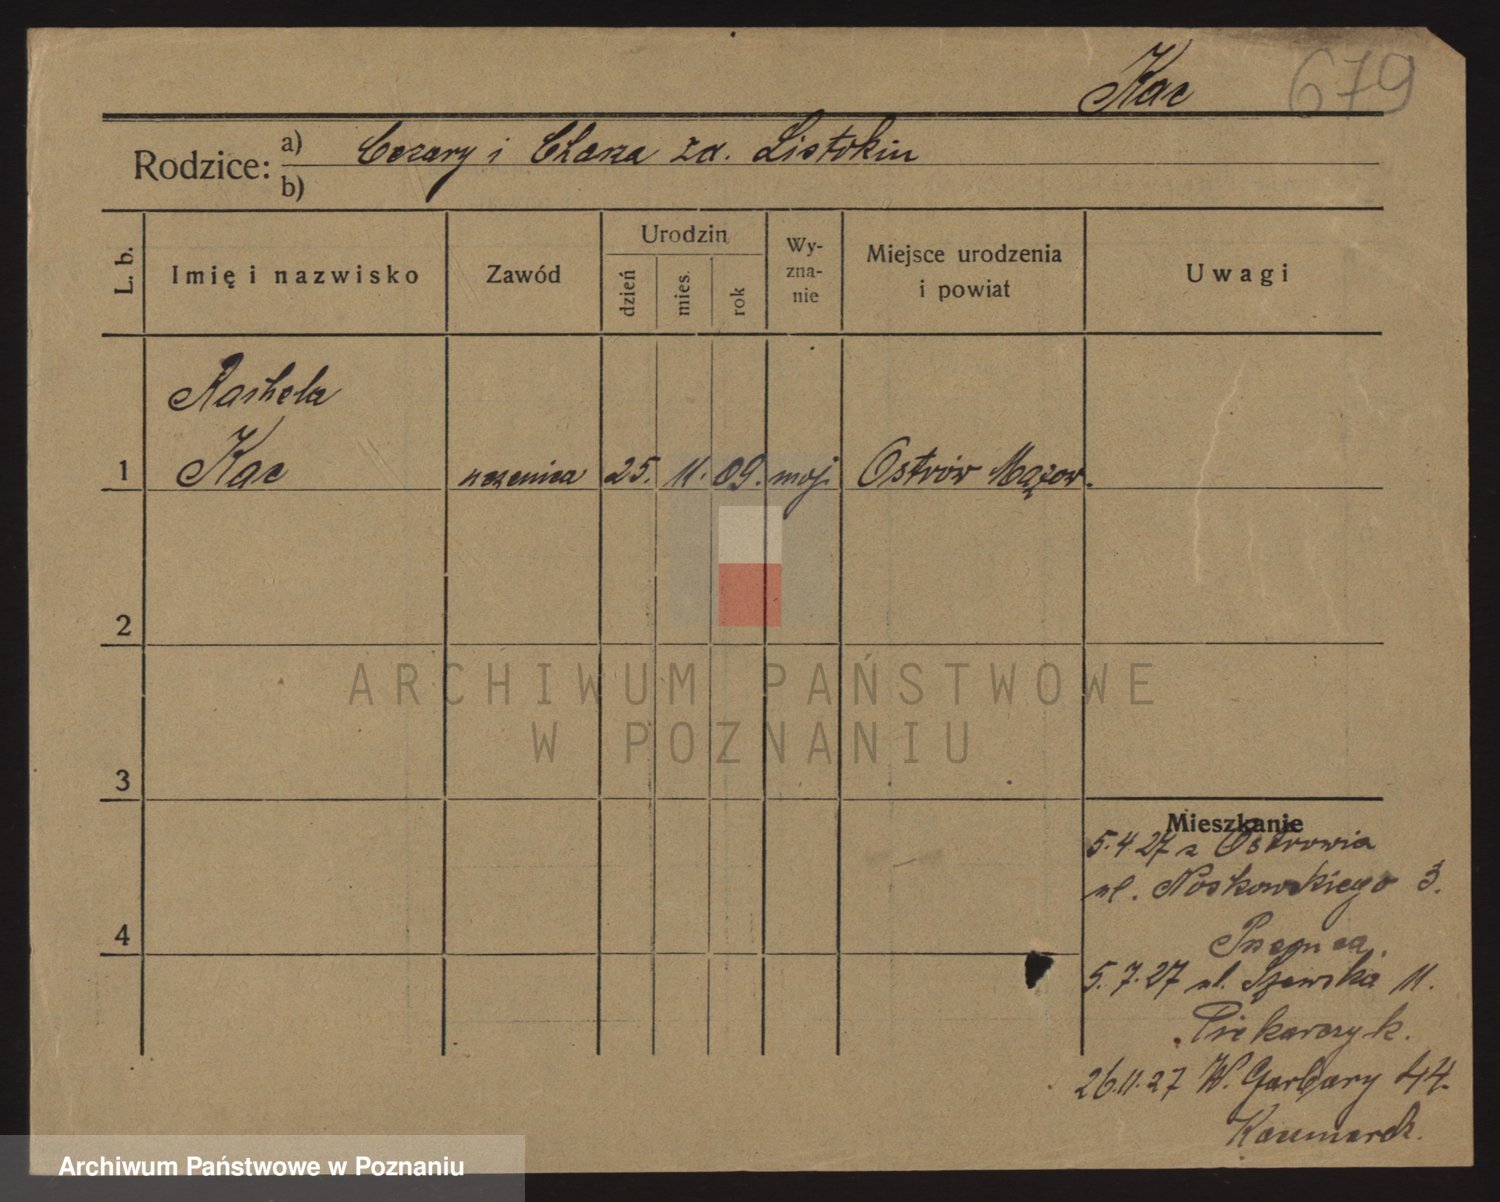 Kac 679
Rodzice: a) Cezary i Chasza zd. Listokin
b)
L. b. Imię i nazwisko Zawód Urodzin dzień mies. rok Wyzna-nie Miejsce urodzenia i powiat Uwagi
Rachela
1 Kac uczenica 25. 11. 09. moj. Ostrów Mazow.
2
ARCHIWUM PAŃSTWOWE
W POZNANIU
3
Mieszkanie
5.4.27 z Ostrowia
ul. Noskowskiego 3.
4
5.7.27 ul. Szewska 11.
Piekarczyk.
26.11.27 W. Garbary 44.
Kaczmarek.
Archiwum Państwowe w Poznaniu